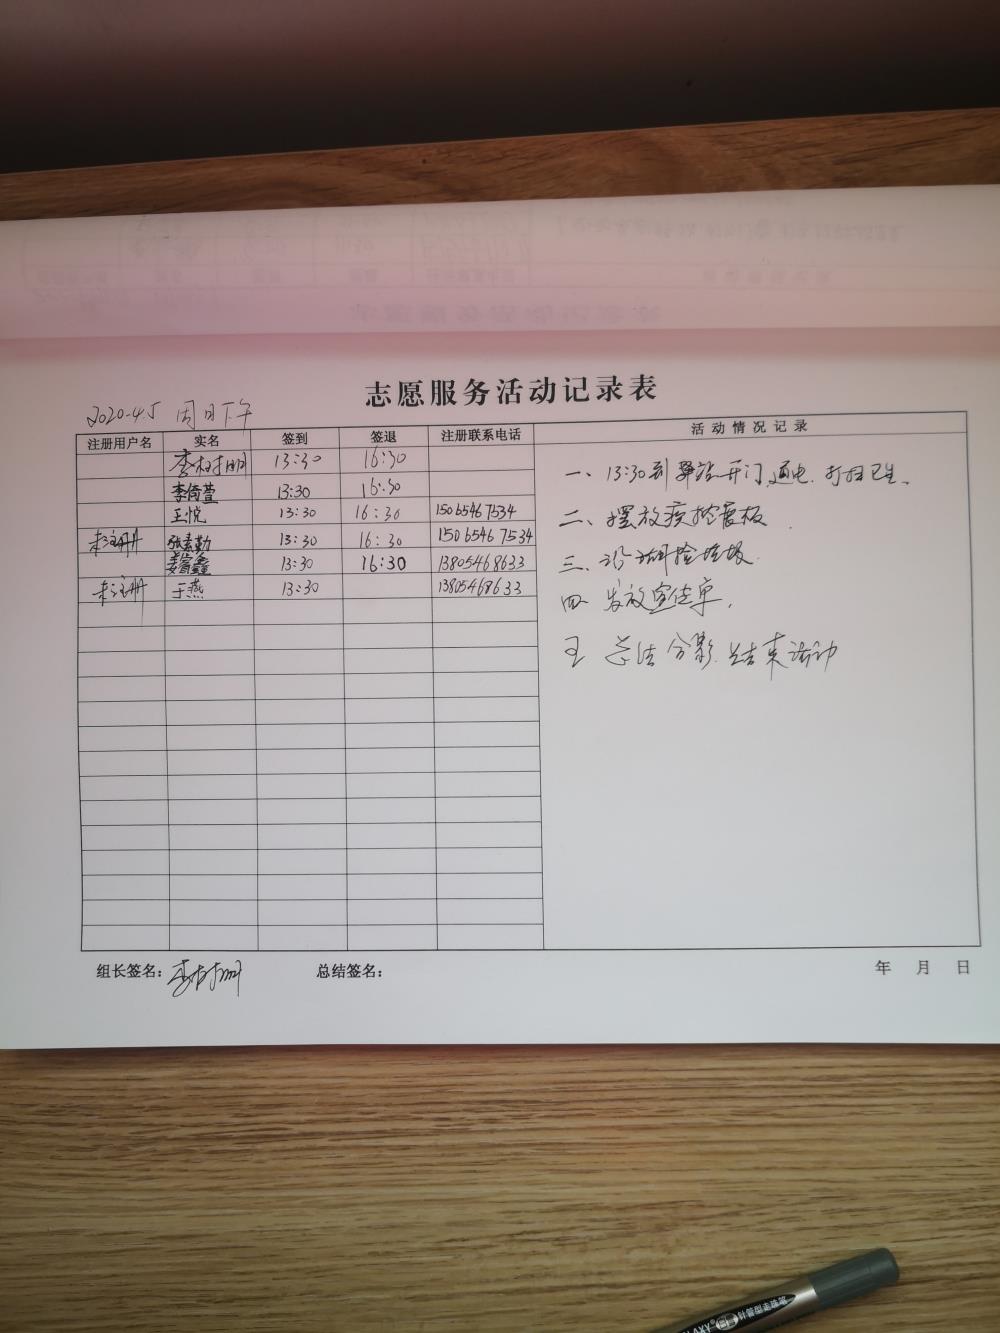 志愿服务活动记录表
2020-4.5 周日下午
注册用户名 实名 签到 签退 注册联系电话 活动情况记录
李树明 13:30 16:30
李倚萱 13:30 16:30
王悦 13:30 16:30 15065467534
未注册 张素勤 13:30 16:30 15065467534
姜睿鑫 13:30 16:30 13805468633
未注册 于燕 13:30 13805468633
一、13:30到驿站开门,通电,打扫卫生、
二、摆放疫控展板.
三、沿湖捡垃圾.
四、发放宣传单.
五 总结分影.结束活动
组长签名:李树明 总结签名: 年 月 日